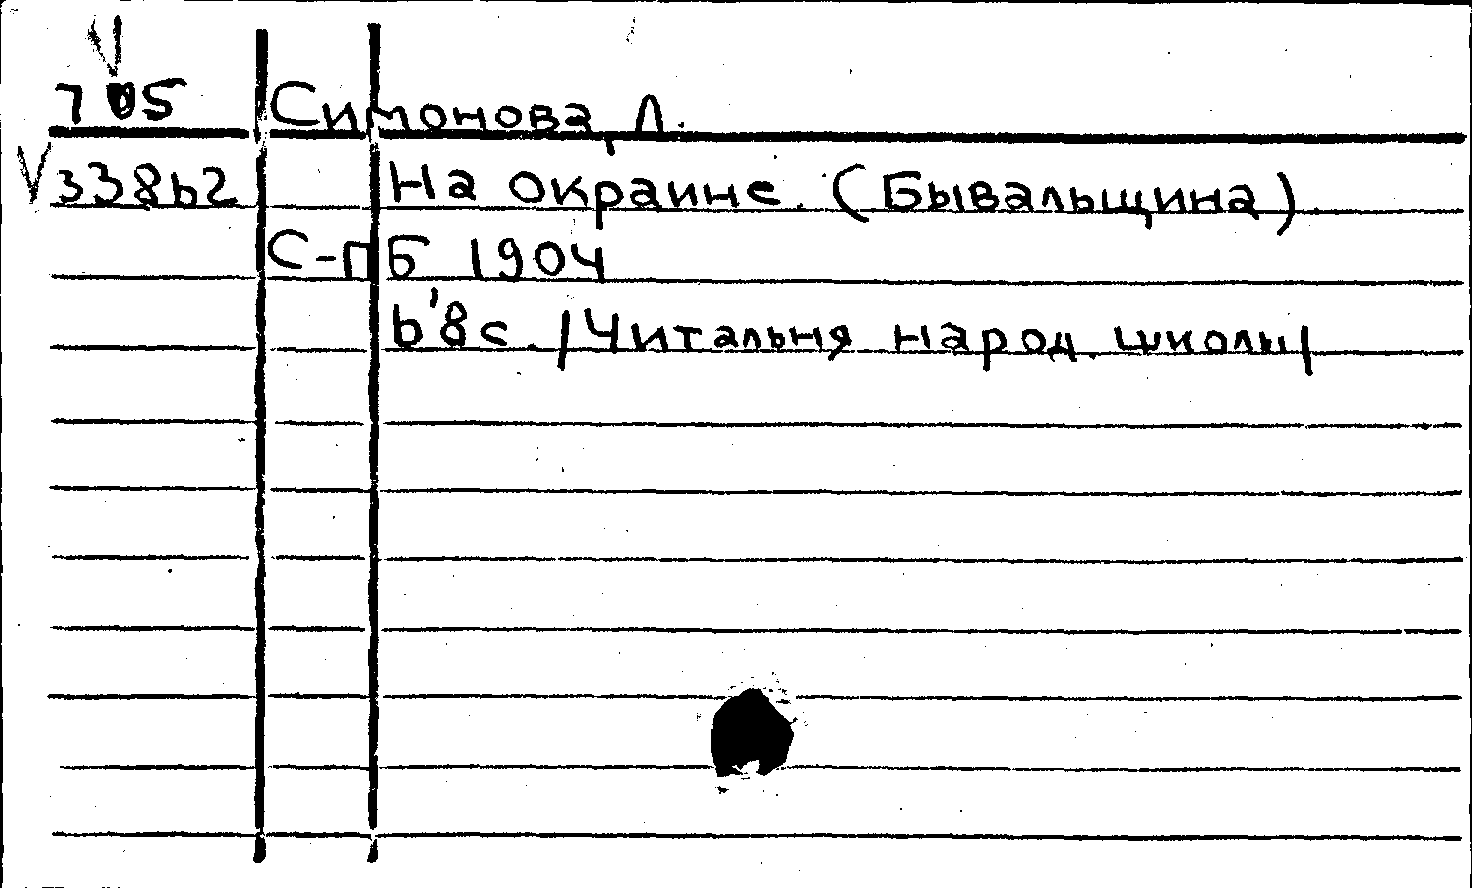 705 Симонова, Л.
338b2 На окраине. (Бывальщина).
С-ПБ 1904
b'8 с. /Читальня народ. школы/